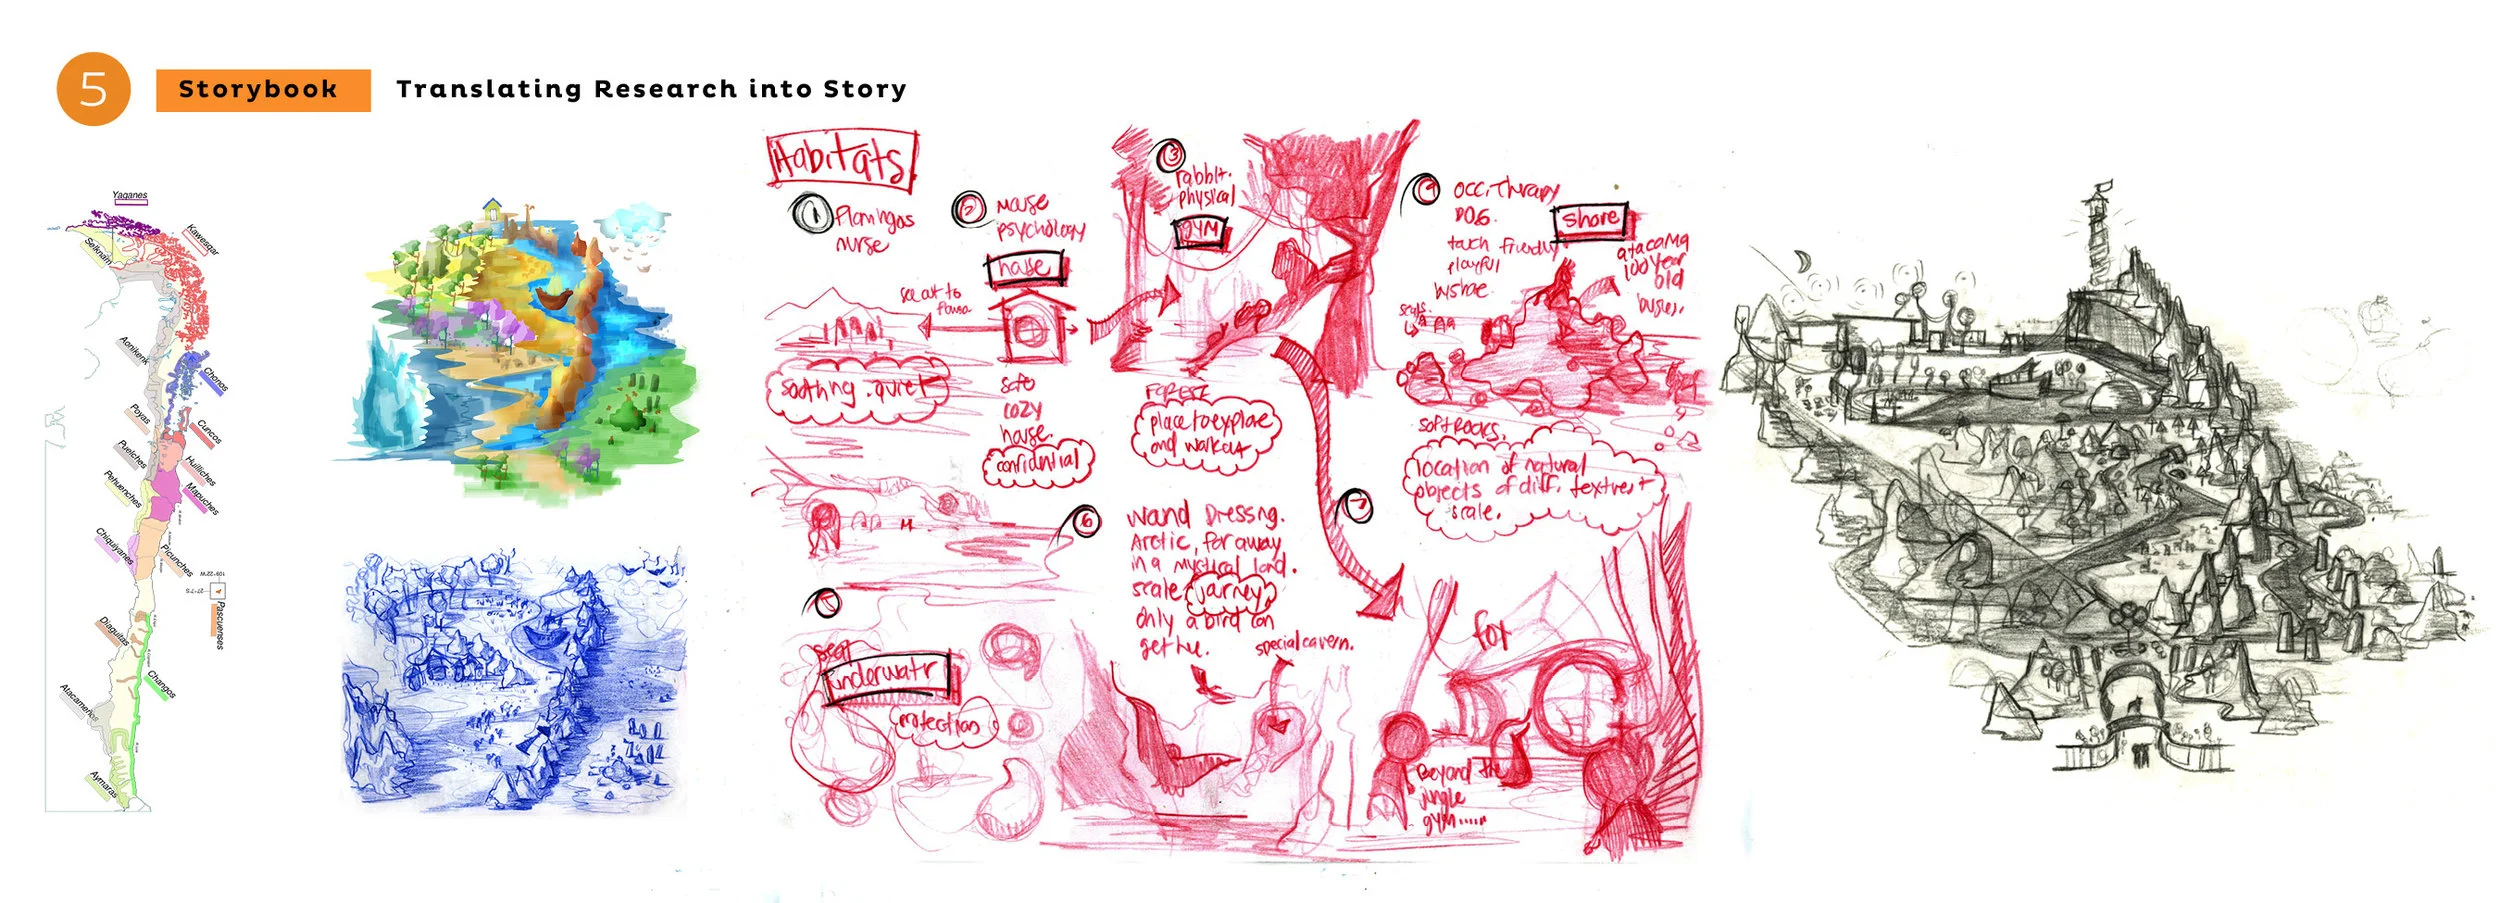 5
Storybook
Translating Research into Story
Yaganes
Kawesqar
Selknam
Aonikenk
Chonos
Poyas
Cuncos
Puelches
Huilliches
Pehuenches
Mapuches
Chiquiyanes
Picunches
109-22'W
27-7'S
Pascuenses
Diaguitas
Changos
Atacameños
Aymaras
Habitats
1
Flamingos
nurse
2
mouse
psychology
house
see out to
safe
cozy
house.
confidential
soothing. quiet
3
rabbit.
physical
gym
FOREST
place to explore
and workout
4
occ. Therapy
DOG.
touch friendly
playful
shore
atacama
100 year
old
seals.
soft rocks.
location of natural
objects of diff. textures +
scale.
5
seal
underwatr
protection
6
wand Dressing.
Arctic, far away
in a mystical land.
scale journey
only a bird can
get he.
special cavern.
7
fox
Beyond the
jungle
gym.....